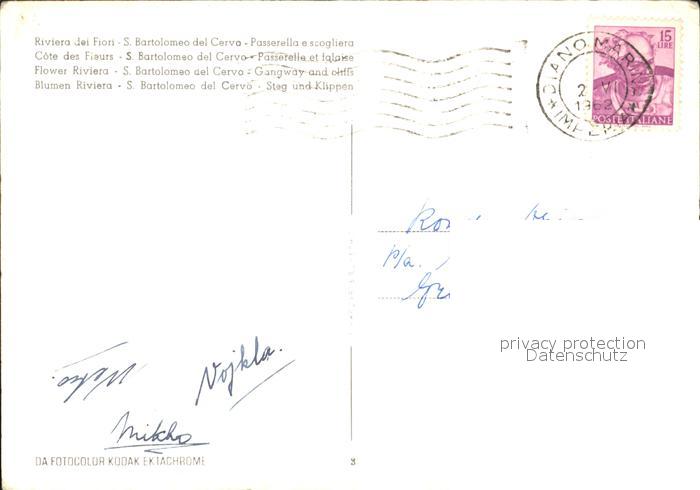 Riviera dei Fiori - S. Bartolomeo del Cervo - Passerella e scogliera
Côte des Fleurs - S. Bartolomeo del Cervo - Passerelle et falaise
Flower Riviera - S. Bartolomeo del Cervo - Gangway and cliffs
Blumen Riviera - S. Bartolomeo del Cervo - Steg und Klippen
DIANO MARINA
1962
IMPERIA
15
LIRE
POSTE ITALIANE
P/a.
privacy protection
Datenschutz
Vojkla.
Mikho
DA FOTOCOLOR KODAK EKTACHROME
3